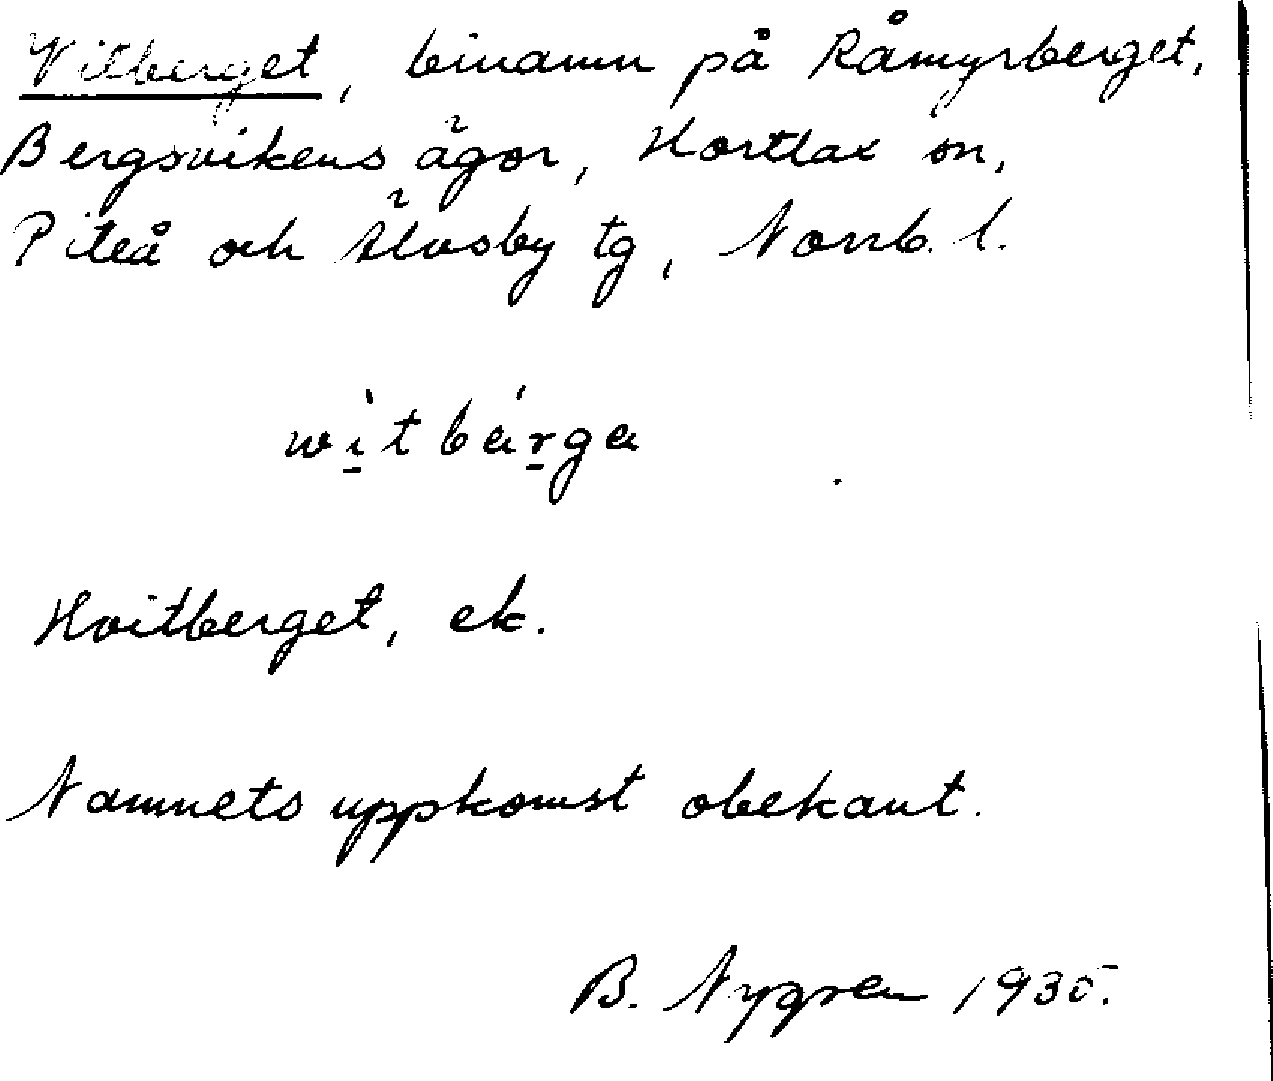 Vitberget, binamn på Råmyrberget,
Bergsvikens ägor, Hortlax sn,
Piteå och Älvsby tg, Norrb. l.
wìtbárga
Hvitberget, ek.
Namnets uppkomst obekant.
B. Nygren 1935.